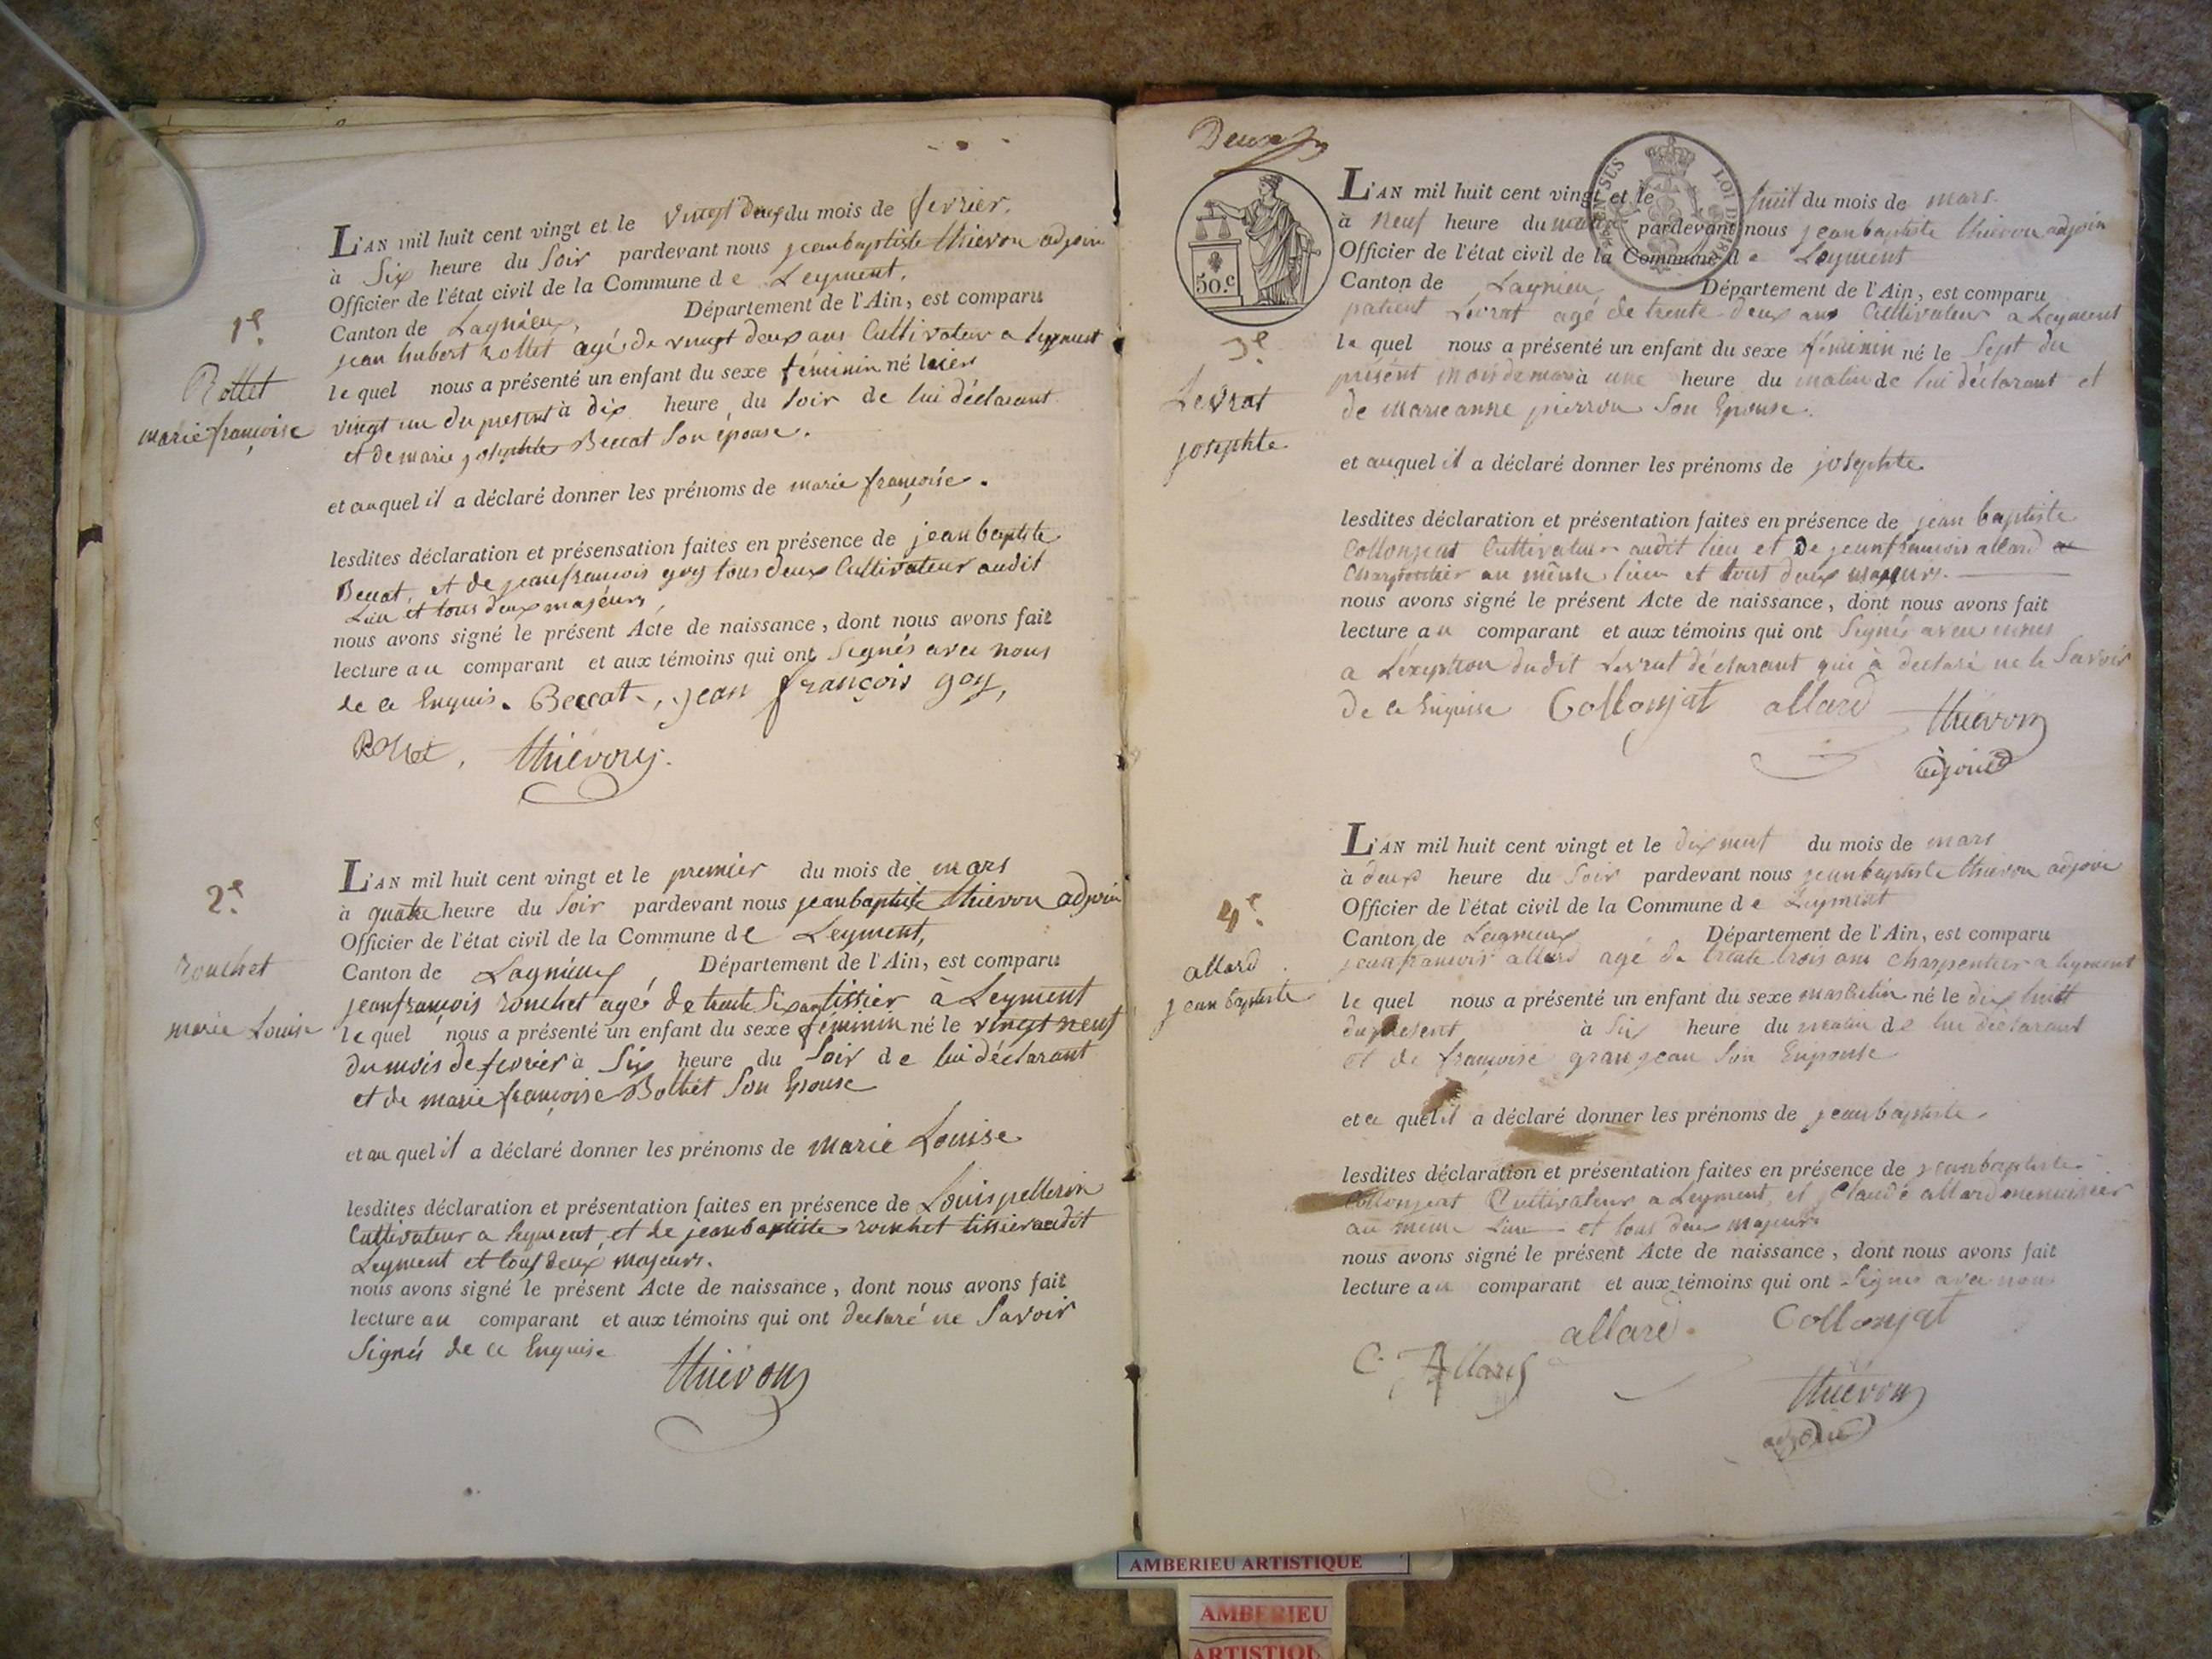 1.e
Rollet
marie françoise
L'AN mil huit cent vingt et le vingt deux du mois de fevrier.
à Six heure du Soir pardevant nous jeanbaptiste thievon adjoin
Officier de l'état civil de la Commune de Leyment,
Canton de Lagnieu, Département de l'Ain, est comparu
jean hubert rollet agé de vingt deux ans Cultivateur a leyment
lequel nous a présenté un enfant du sexe féminin né le
vingt un du present à dix heure du Soir de lui déclarant
et de marie josephte Beccat Son epouse.
et auquel il a déclaré donner les prénoms de marie françoise.
lesdites déclaration et présensation faites en présence de jean baptiste
Beccat, et de jeanfrancois goy tous deux Cultivateur audit
Lieu et tous deux majeurs
nous avons signé le présent Acte de naissance, dont nous avons fait
lecture au comparant et aux témoins qui ont Signés avec nous
de ce Enquis. Beccat, jean françois goy,
Rollet, thiévon
2.e
rouchet
marie Louise
L'AN mil huit cent vingt et le premier du mois de mars
à quatre heure du Soir pardevant nous jeanbaptiste thievon adjoin
Officier de l'état civil de la Commune de Leyment,
Canton de Lagnieu, Département de l'Ain, est comparu
jeanfrançois rouchet agé de trente Six ans tissier à Leyment
lequel nous a présenté un enfant du sexe féminin né le vingt neuf
du mois de fevrier à Six heure du Soir de lui déclarant
et de marie françoise Bolliet Son Epouse
et au quel il a déclaré donner les prénoms de marie Louise
lesdites déclaration et présentation faites en présence de Louis pellerin
Cultivateur a leyment, et de jeanbaptiste rouchet tissier audit
Leyment et tous deux majeurs.
nous avons signé le présent Acte de naissance, dont nous avons fait
lecture au comparant et aux témoins qui ont declaré ne Savoir
Signés de ce Enquise
thiévon
Deux
50.c
3.e
Levrat
josephte
L'AN mil huit cent vingt et le huit du mois de mars
à neuf heure du matin pardevant nous jeanbaptiste thievon adjoin
Officier de l'état civil de la Commune de Leyment
Canton de Lagnieu Département de l'Ain, est comparu
patient Levrat agé de trente deux ans Cultivateur a Leyment
lequel nous a présenté un enfant du sexe féminin né le Sept du
présent mois de mars à une heure du matin de lui déclarant et
de marieanne pierron Son Epouse.
et auquel il a déclaré donner les prénoms de josephte
lesdites déclaration et présentation faites en présence de jean baptiste
Collonjeat Cultivateur audit lieu et de jeanfrancois allard
Charpentier au même lieu et tous deux majeurs.
nous avons signé le présent Acte de naissance, dont nous avons fait
lecture au comparant et aux témoins qui ont Signés avec nous
a L'exeption dudit Levrat déclarant qui à declaré ne le Savoir
de ce Enquise Collonjat allard thiévon
adjoint
4.e
allard
jean baptiste
L'AN mil huit cent vingt et le dix neuf du mois de mars
à deux heure du Soir pardevant nous jeanbaptiste thievon adjoin
Officier de l'état civil de la Commune de Leyment
Canton de Lagnieux Département de l'Ain, est comparu
jeanfrancois allard agé de trente trois ans charpentier a leyment
lequel nous a présenté un enfant du sexe masculin né le dix huit
du present à Six heure du matin de lui déclarant
et de françoise granjean Son Enpouse
et a quel il a déclaré donner les prénoms de jeanbaptiste
lesdites déclaration et présentation faites en présence de jeanbaptiste
Collonjeat Cultivateur a Leyment, et Claude allard menuisier
au meme Lieu et tous deux majeurs
nous avons signé le présent Acte de naissance, dont nous avons fait
lecture au comparant et aux témoins qui ont Signés avec nous
allard. Collonjat
C. Allard
thiévon
adjoint
AMBERIEU ARTISTIQUE
AMBERIEU
ARTISTIQU